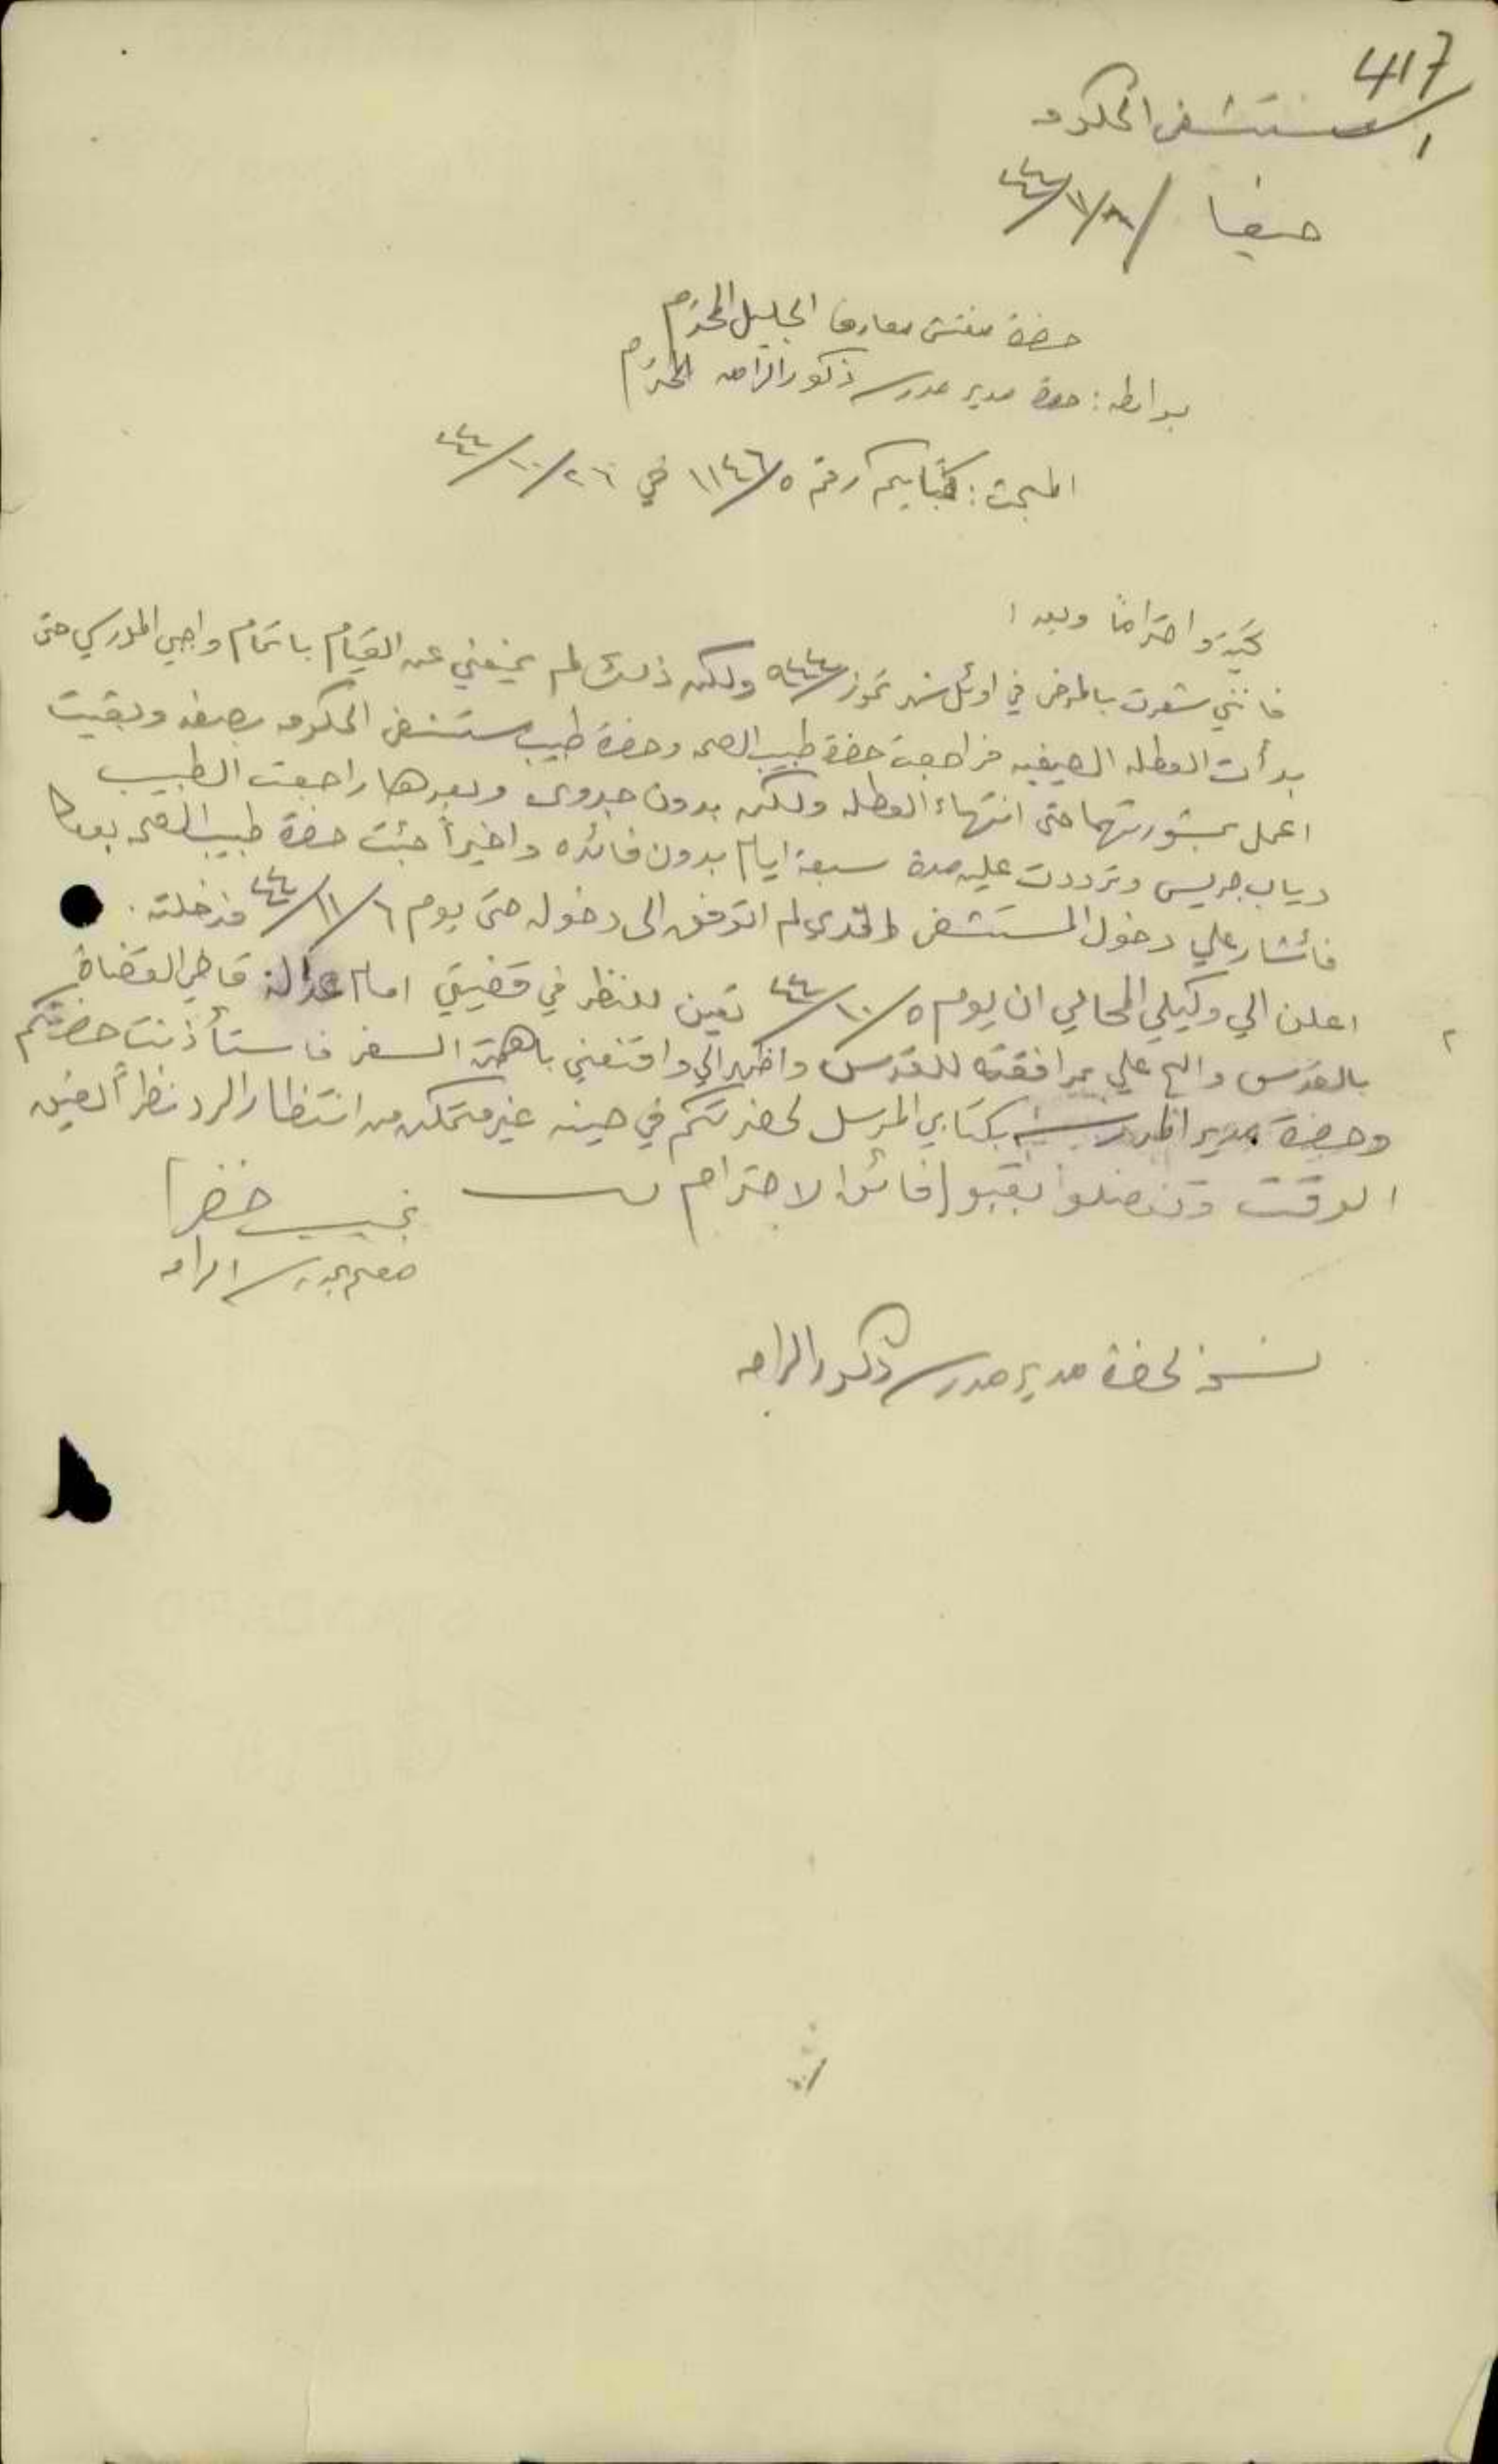 417
مستشفى الحكومه
حيفا / ٨/١١/٤٤
حضرة مفتش معارف الجليل المحترم
بواسطه: حضرة مدير مدرسة ذكور الرامه المحترم
المبحث: كتابكم رقم ١١٤٦/٥ في ٢٦/١٠/٤٤
تحية واحتراماً وبعد ١
فانني شعرت بالمرض في اوئل شهر تموز ٩٤٤ ولكن ذلك لم يمنعني عن القيام باتمام واجبي المدرسي حتى
بدأت العطله الصيفيه فراجعت حضرة طبيب الصحه وحضرة طبيب مستشفى الحكومه بحيفه وبقيت
اعمل بمشورتهما حتى انتهاء العطله ولكن بدون جدوى وبعدها راجعت الطبيب
دياب جريس وترددت عليه مدة سبعة ايام بدون فائده واخيراً جئت حضرة طبيب الصحه بعكا
فأشار علي دخول المستشفى لم اتوفق الى دخوله حتى يوم ٦/١١/٤٤ فدخلته.
٢ اعلن الي وكيلي المحامي ان يوم ٥/١٠/٤٤ تعين للنظر في قضيتي امام عدالة قاضي القضاة
بالقدس والح علي بمرافقته للقدس واظهر الي واقنعني باهمية السفر فاستأذنت حضرتكم
وحضرة مدير المدرسة بكتابي المرسل لحضرتكم في حينه غير متمكن من انتظار الرد نظراً لضيق
الوقت وتفضلوا بقبول فائق الاحترام
نجيب خضرا
معلم بمدرسة الرامه
نسخة لحضرة مدير مدرسة ذكور الرامه